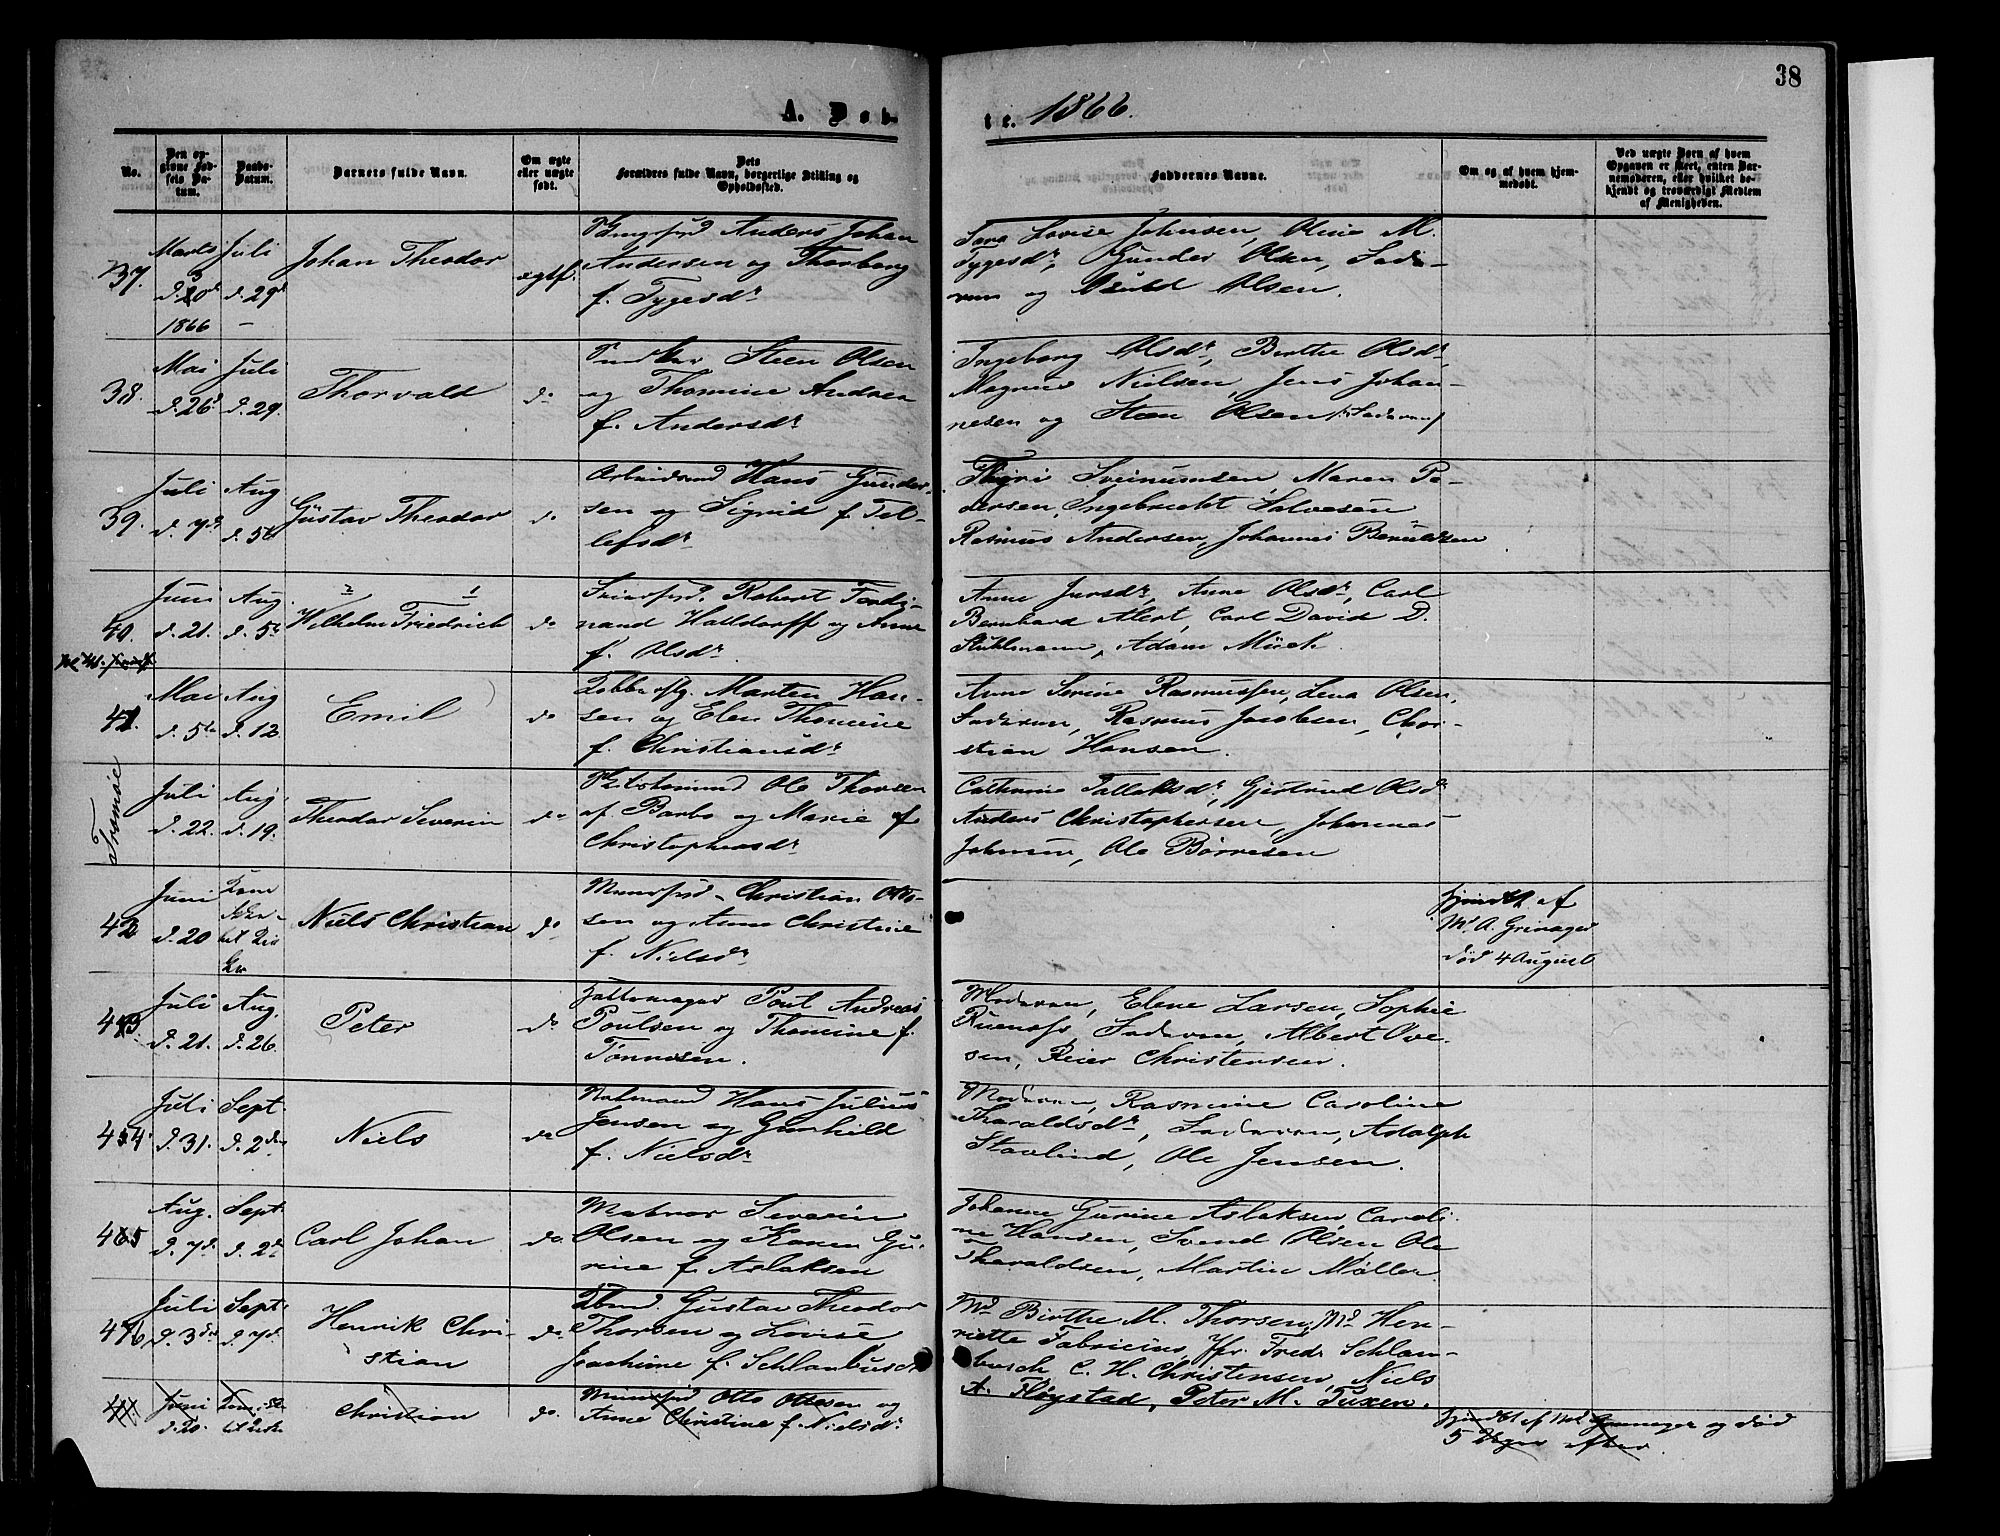 38
A. Døb-
te. 1866.
No.
Den op-
givne Fød-
sels Da-
tum.
Daabs-
Datum.
Barnets fulde Navn.
Om ægte
eller uægte
født.
Dets
Forældres fulde Navn, borgerlige Stilling og
Opholdssted.
Faddernes Navne.
Om og af hvem hjem-
medøbt.
Ved uægte Børn af hvem
Opgaven er skeet, enten Bar-
nemoderen, eller hvilket be-
kjendt og troværdigt Medlem
af Menigheden.
37.
Marts
d. 20d
1866
Juli
d. 29d
Johan Theodor
ægtf.
Anders Johan
Andersen og Thorborg
f. Tygesdr
Sara Lovise Johnsen, Oline M.
Tygesdr, Gunder Olsen, Fade-
ren og Olsen.
38.
Mai
d. 26d
Juli
d. 29.
Thorvald
do
Steen Olsen
og Thomine Andrea
f. Andersdr
Ingeborg Olsdr, Birthe Olsdr
Magnus Nielsen, Jens Johan-
nesen og Steen Olsen /: Faderen/
39.
Juli
d. 7d.
Aug
d. 5te
Gustav Theodor
do
Arbeidsmd Hans Gunder-
sen og Sigrid f. Tel-
lefsdr
Sveinumsen, Maren Pe-
dersen, Ingebrecht Salvesen
Rasmus Andersen, Johannes
40.
Juni
d. 21.
Aug.
d. 5te
2 1
Wilhelm Friedrich
do
Robert Ferdi-
nand Halldorff og Anne
f. Olsdr.
Anne Jursdr, Anne Olsdr, Carl
Bernhard Alert, Carl David D.
Stuhlmann, Adam Mück.
41.
Mai
d. 5te
Aug
d. 12.
Emil
do
Marten Han-
sen og Elen Thomine
f. Christiansdr
Anne Serine Rasmussen, Lena Olsen,
Faderen, Rasmus Jacobsen, Chri-
stian Hansen.
Tromøe
Juli
d. 22.
Aug.
d. 19.
Theodor Severin
do
Ole Thorsen
af Barbo og Marie f.
Christophersdr
Cathrine Tallaksdr, Gjertrud Olsdr
Anders Christophersen, Johannes
Johnsen, Ole Børresen
42
Juni
d. 20
Niels Christian
do
Christian Otto-
sen og Anne Christine
f. Nielsdr.
Hjmdbt. af
Md. A. Grinager
død 4 August
43
Juli
d. 21.
Aug.
d. 26.
Peter
do
Poul Andreas
Poulsen og Thomine f.
Tønnesen.
Moderen, Elene Larsen, Sophie
Faderen, Albert Ove-
sen, Reier Christensen.
44
Juli
d. 31.
Sept.
d. 2den
Niels
do
Hans Julius
Jensen og Gunhild
f. Nielsdr
Moderen, Rasmine Caroline
Tharaldsdr, Faderen, Adolph
Stavlind, Ole Jensen.
45
Aug.
d. 7d.
Sept.
d. 2d
Carl Johan
do.
Matros Severin
Olsen og Karen Gu-
rine f. Aslaksen
Johanne Gurine Aslaksen, Caroli-
ne Hansen, Svend Olsen, Ole
Tharaldsen, Martin Møller.
46
Juli
d. 3die
Sept.
d. 7d.
Henrik Chri-
stian
do
Gustav Theodor
Thorsen og Lovise
Joachime f. Schlanbusch
Md Birthe M. Thorsen, Md Hen-
riette Fabricius, Jfr. Fred. Schlan-
busch, C. H. Christensen, Niels
A. Fløystad, Peter M. Tuxen.
Juni
d. 20.
Christian
do.
Otto Ottesen og
Anne Christine f. Nielsdr.
Hjmdbt af Md Grønager og død
5 Uger efter.